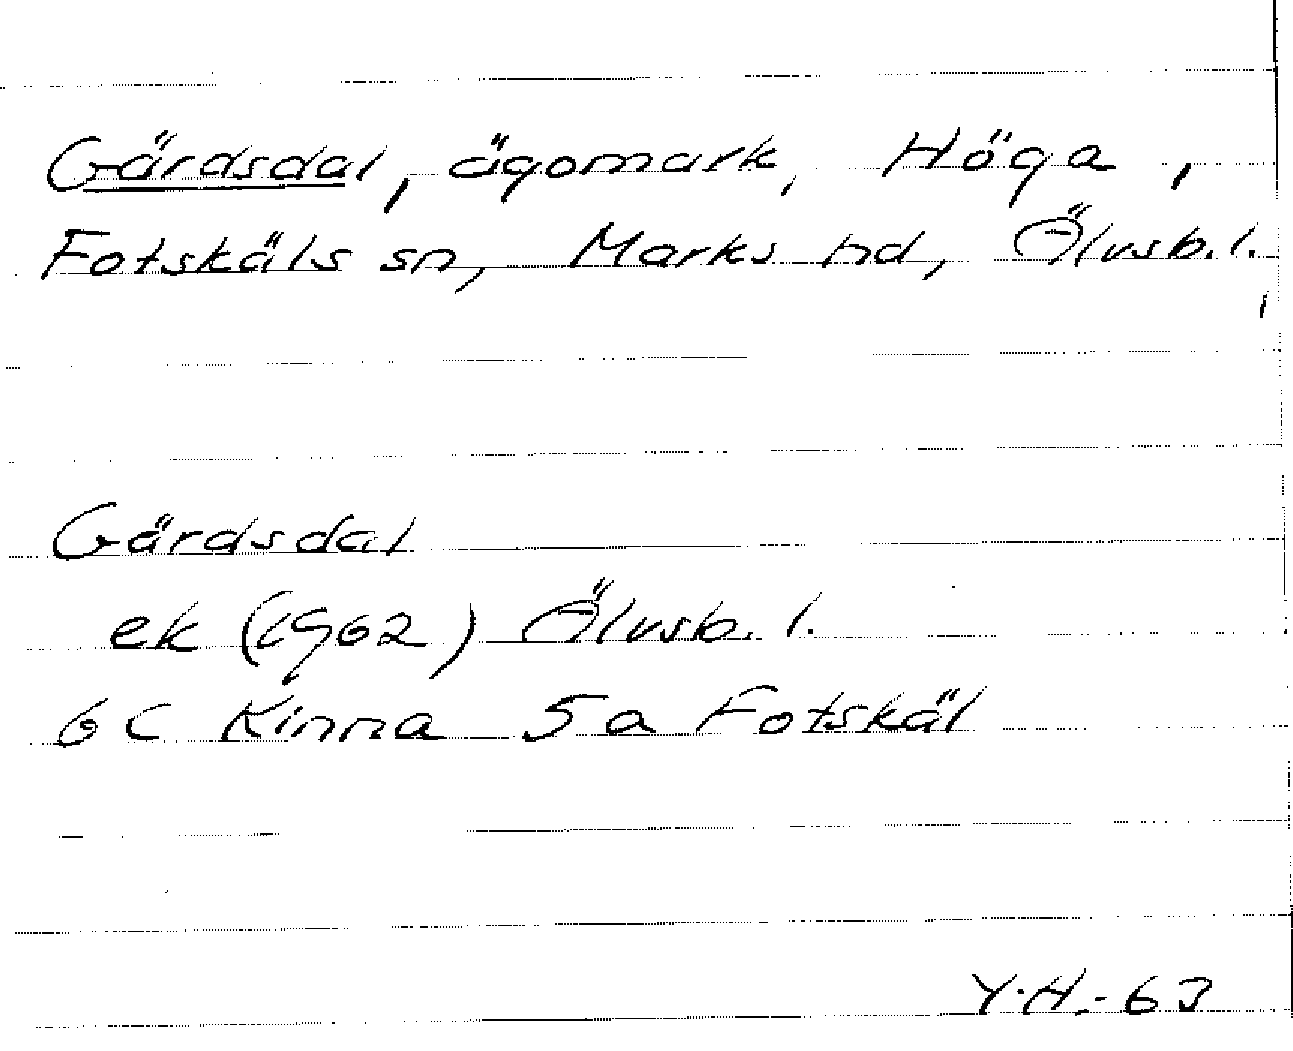 Gärdsdal, ägomark, Höga,
Fotskäls sn, Marks hd, Älvsb.l.
Gärdsdal
ek (1962) Älvsb.l.
6C Kinna 5a Fotskäl
Y.H.-63